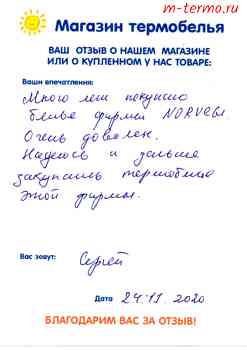 m-termo.ru
Магазин термобелья
ВАШ ОТЗЫВ О НАШЕМ МАГАЗИНЕ
ИЛИ О КУПЛЕННОМ У НАС ТОВАРЕ:
Ваши впечатления:
Много лет покупаю
белье фирмы NORVEG.
Очень доволен.
Надеюсь и дальше
закупать термобелье
этой фирмы.
Вас зовут: Сергей
Дата 24.11 2020
БЛАГОДАРИМ ВАС ЗА ОТЗЫВ!